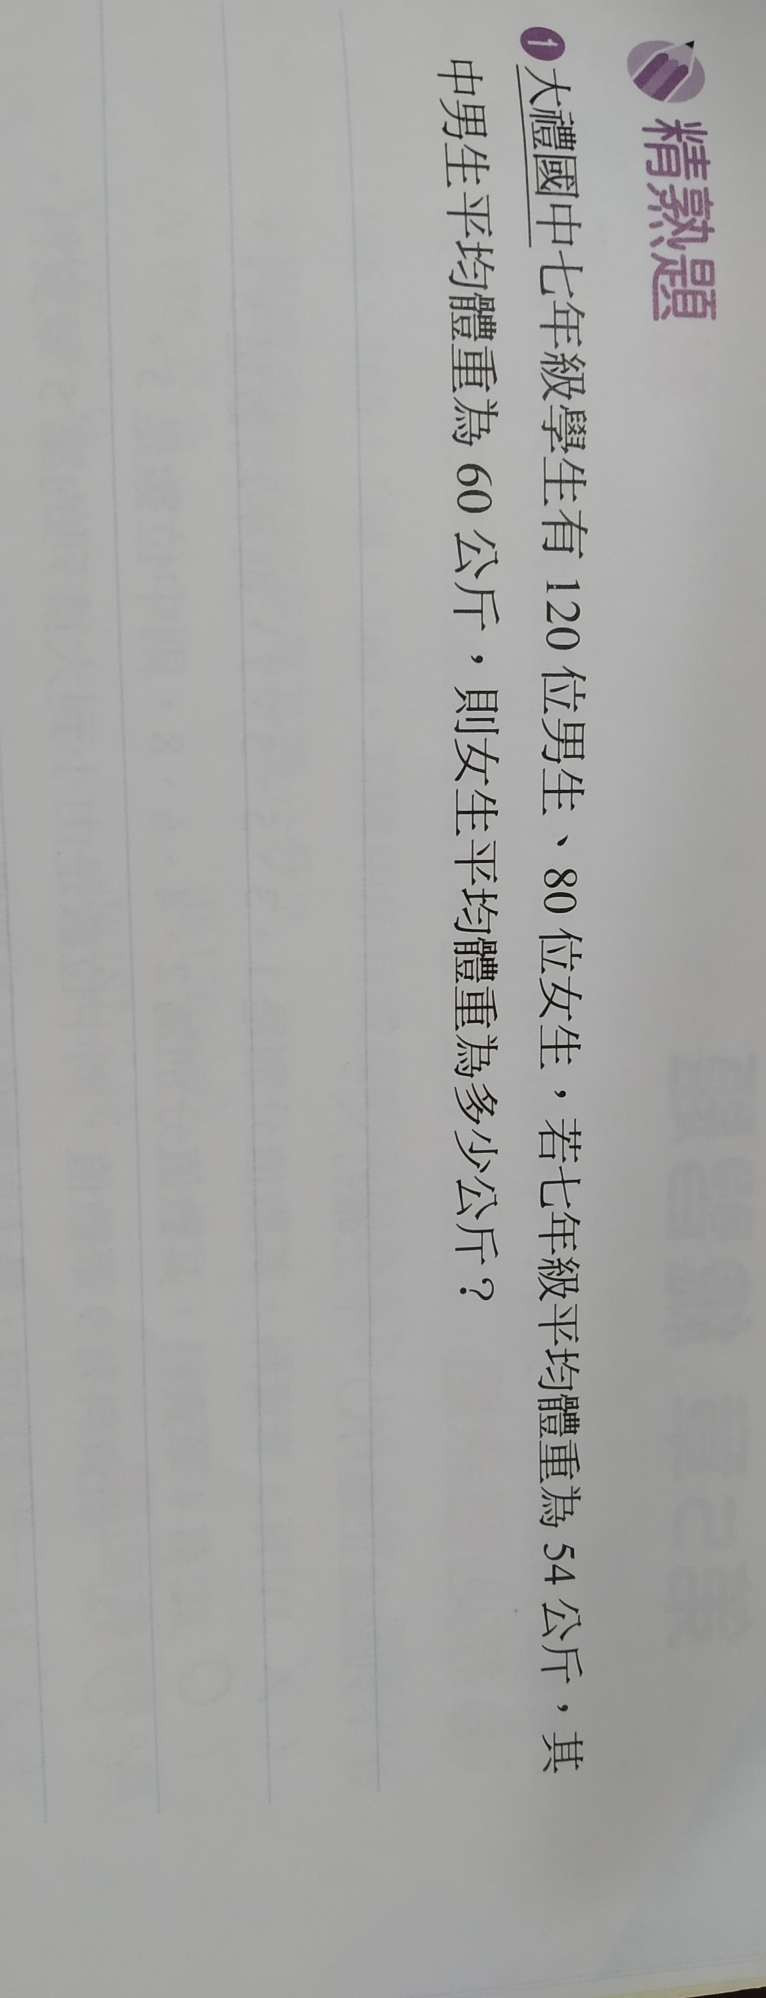 精熟題
1 大禮國中七年級學生有 120 位男生、80 位女生，若七年級平均體重為 54 公斤，其
中男生平均體重為 60 公斤，則女生平均體重為多少公斤？